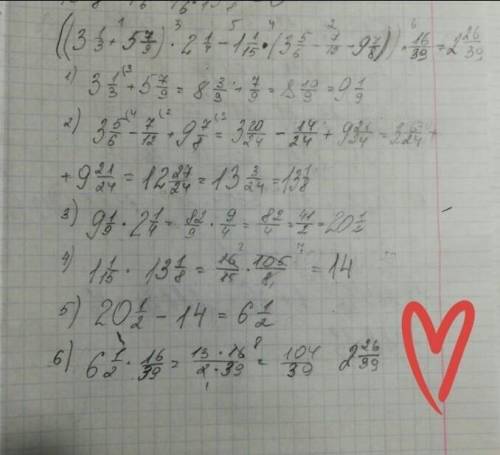 ((3 1/3 + 5 7/9) · 2 1/4 - 1 1/15 · (3 5/6 - 7/12 - 9 7/8)) · 16/39 = 2 26/39
1) 3 1/3 + 5 7/9 = 8 3/9 + 7/9 = 8 10/9 = 9 1/9
2) 3 5/6 - 7/12 + 9 7/8 = 3 20/24 - 14/24 + 9 21/24 = 3 6/24 +
+ 9 21/24 = 12 27/24 = 13 3/24 = 13 1/8
3) 9 1/9 · 2 1/4 = 82/9 · 9/4 = 82/4 = 41/2 = 20 1/2
4) 1 1/15 · 13 1/8 = 16/15 · 105/8 = 14
5) 20 1/2 - 14 = 6 1/2
6) 6 1/2 · 16/39 = 13 · 16/2 · 39 = 104/39 2 26/39